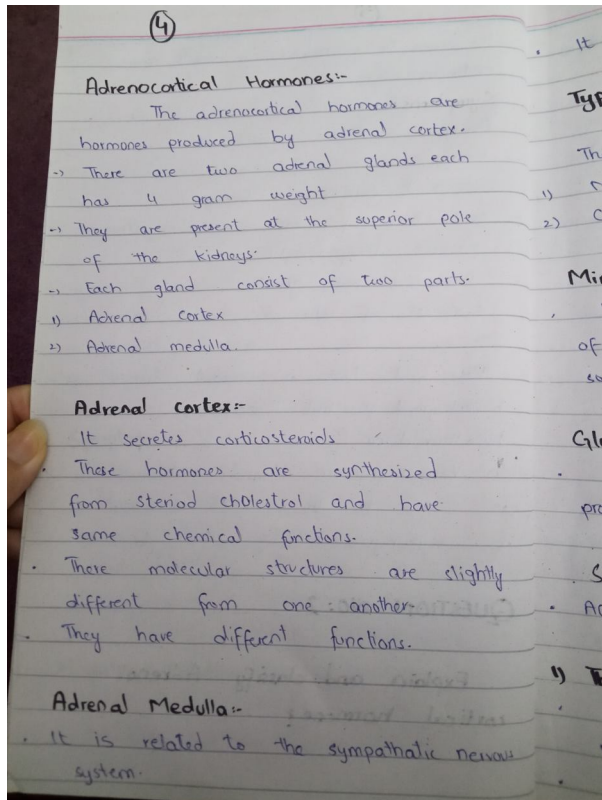 4
Adrenocortical Hormones:-
The adrenocortical hormones are
hormones produced by adrenal cortex.
-> There are two adrenal glands each
has 4 gram weight
-> They are present at the superior pole
of the kidneys.
-> Each gland consist of two parts.
1) Adrenal cortex
2) Adrenal medulla.
Adrenal cortex:-
It secretes corticosteroids
• These hormones are synthesized
from steriod cholestrol and have
same chemical functions.
• There molecular structures are slightly
different from one another.
• They have different functions.
Adrenal Medulla:-
• It is related to the sympathatic nervous
system.
• It
Typ
Th
1)
2) C
Min
of
so
Glu
pro
S
• Ac
1) T